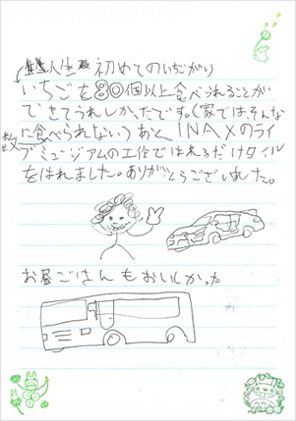 人生初めてのいちごがり
いちごを80個以上食べられることが
できてうれしかったです。(家では、そんな
に食べられない)あと、INAXのライ
ブミュージアムの工作ではれるだけタイル
をはれました。ありがとうございました。
お昼ごはんもおいしかった